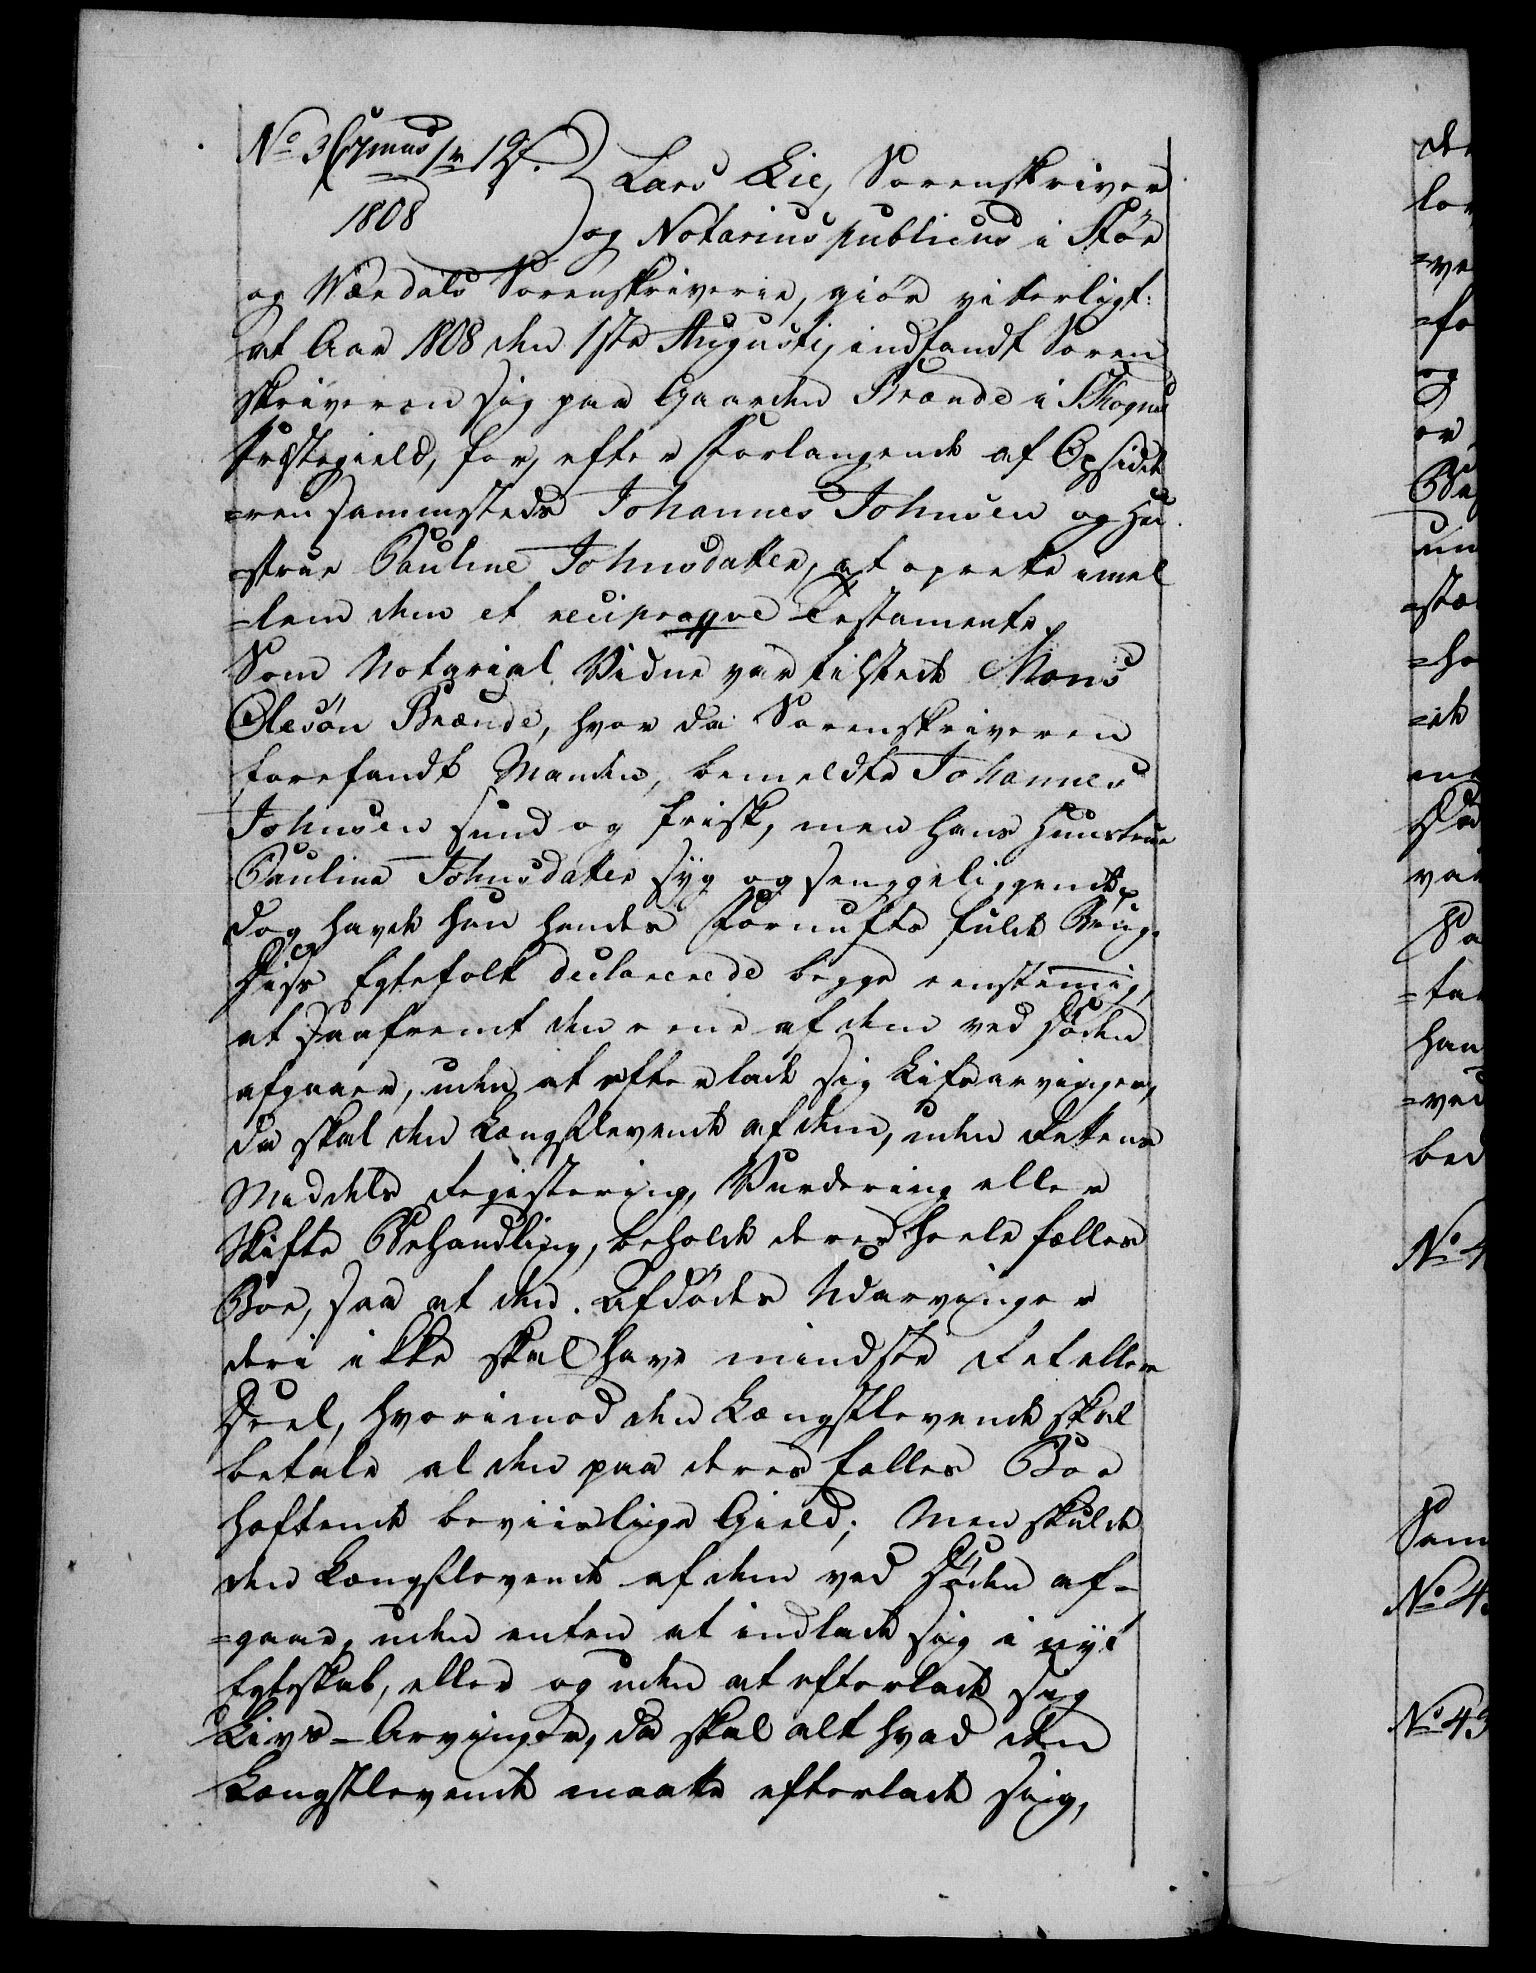 No 3
1808
Lars Lie, Sorenskriver
og Notarius publicus i Stør
og Værdals Sorenskriverie, giør viterligt:
at Aar 1808 den 1ste Augusti, indfandt Soren
skriveren sig paa Gaarden Brænde i Skogns
Præstegield, for, efter Forlangende af Opsidde
=ren sammesteds Johannes Johnsen og Hu
strue Pauline Johnsdatter, at oprette imel
=lem dem et reciproqve Testamente,
Som Notarial Vidne var tilstede Mons
Olesøn Brænde, hvor da Sorenskriveren
forefandt Manden, bemeldte Johannes
Johnsen sund og frisk, men hans Huustrue
Pauline Johnsdatter syg og senggeliggende,
dog havde hun hendes Fornufts fulde Brug.
Disse Egtefolk declarerede begge eenstemig,
at saafremt den eene af dem ved Døden
afgaaer, uden at efterlade sig Lifsarvinger,
da skal den Længstlevende af dem, uden Rettens
Middels Registering, Vurdering eller
Skifte Behandling, beholde deres heele fælles
Boe, saa at den Afdødes Udarvinger
deri ikke skal have mindste Ret eller
Deel, hvorimod den Længstlevende skal
betale al den paa deres fælles Boe
heftende beviislige Gield; Men skulde
den Længstlevende af dem ved Døden af-
=gaae, uden enten at indlade sig i nyt
Egteskab, eller og uden at efterlade sig
Livs-Arvinger, da skal alt hvad den
Længstlevende maatte efterlade sig,